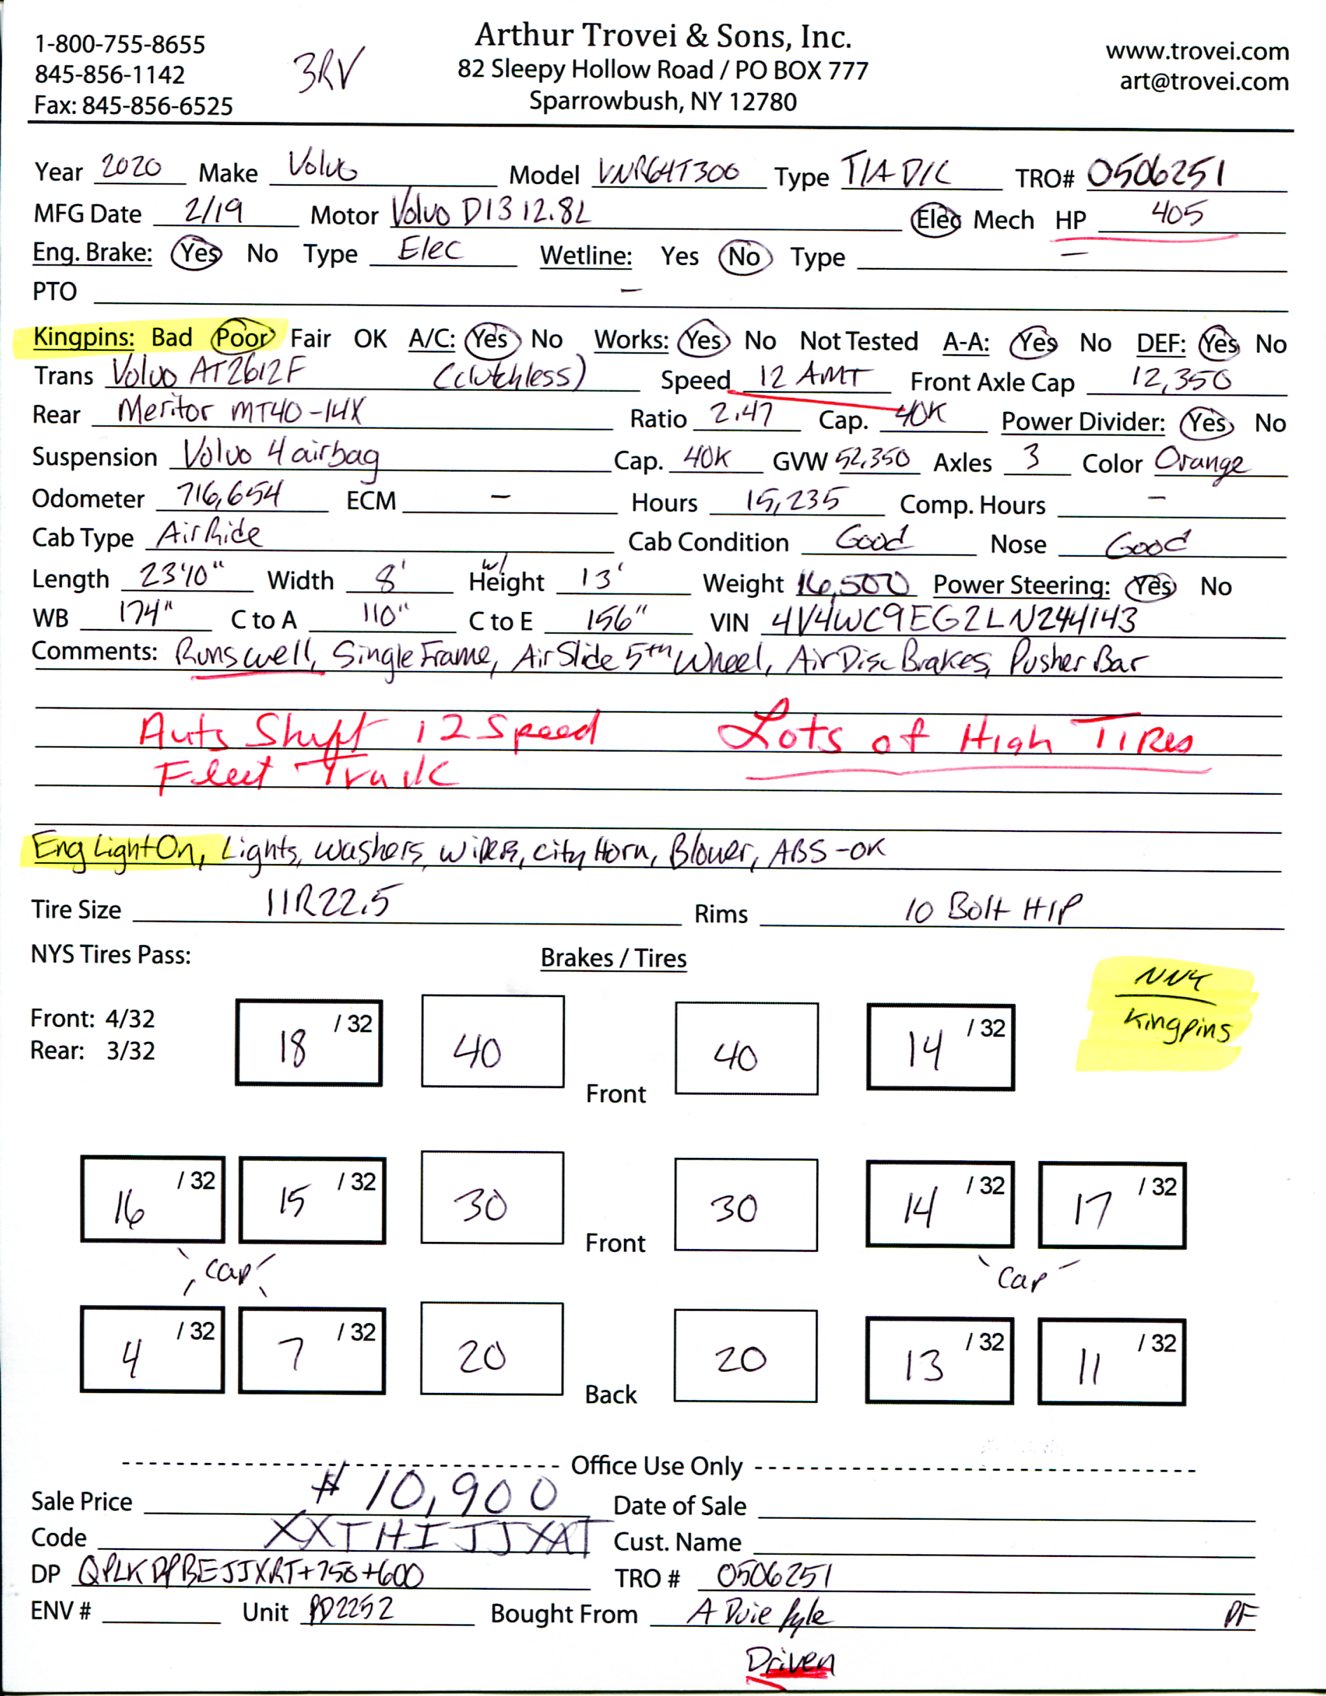 1-800-755-8655
845-856-1142
Fax: 845-856-6525
3RV
Arthur Trovei & Sons, Inc.
82 Sleepy Hollow Road / PO BOX 777
Sparrowbush, NY 12780
www.trovei.com
art@trovei.com
Year 2020 Make Volvo Model VNR64T300 Type T/A D/C TRO# 0506251
MFG Date 2/19 Motor Volvo D13 12.8L Elec Mech HP 405
Eng. Brake: Yes No Type Elec Wetline: Yes No Type —
PTO —
Kingpins: Bad Poor Fair OK A/C: Yes No Works: Yes No Not Tested A-A: Yes No DEF: Yes No
Trans Volvo AT2612F (clutchless) Speed 12 AMT Front Axle Cap 12,350
Rear Meritor MT40-14X Ratio 2.47 Cap. 40K Power Divider: Yes No
Suspension Volvo 4 airbag Cap. 40K GVW 52,350 Axles 3 Color Orange
Odometer 716,654 ECM — Hours 15,235 Comp. Hours —
Cab Type Air Ride Cab Condition Good Nose Good
Length 23'10" Width 8' w/ Height 13' Weight 16,500 Power Steering: Yes No
WB 174" C to A 110" C to E 156" VIN 4V4WC9EG2LN244143
Comments: Runs well, Single Frame, Air Slide 5th Wheel, Air Disc Brakes, Pusher Bar
Auto Shift 12 Speed Lots of High Tires
Fleet Truck
Eng Light On, Lights, washers, wipers, city Horn, Blower, ABS-OK
Tire Size 11R22.5 Rims 10 Bolt H/P
NYS Tires Pass: Brakes / Tires
NNY
Kingpins
Front: 4/32
Rear: 3/32
18 /32 40 Front 40 14 /32
16 /32 15 /32 30 Front 30 14 /32 17 /32
Cap Cap
4 /32 7 /32 20 Back 20 13 /32 11 /32
Office Use Only
Sale Price $10,900 Date of Sale
Code XXTHIJJXAT Cust. Name
DP QPLKDPBEJJXRT+750+600 TRO # 0506251
ENV # Unit PD2252 Bought From A Duie Pyle PF
Driven